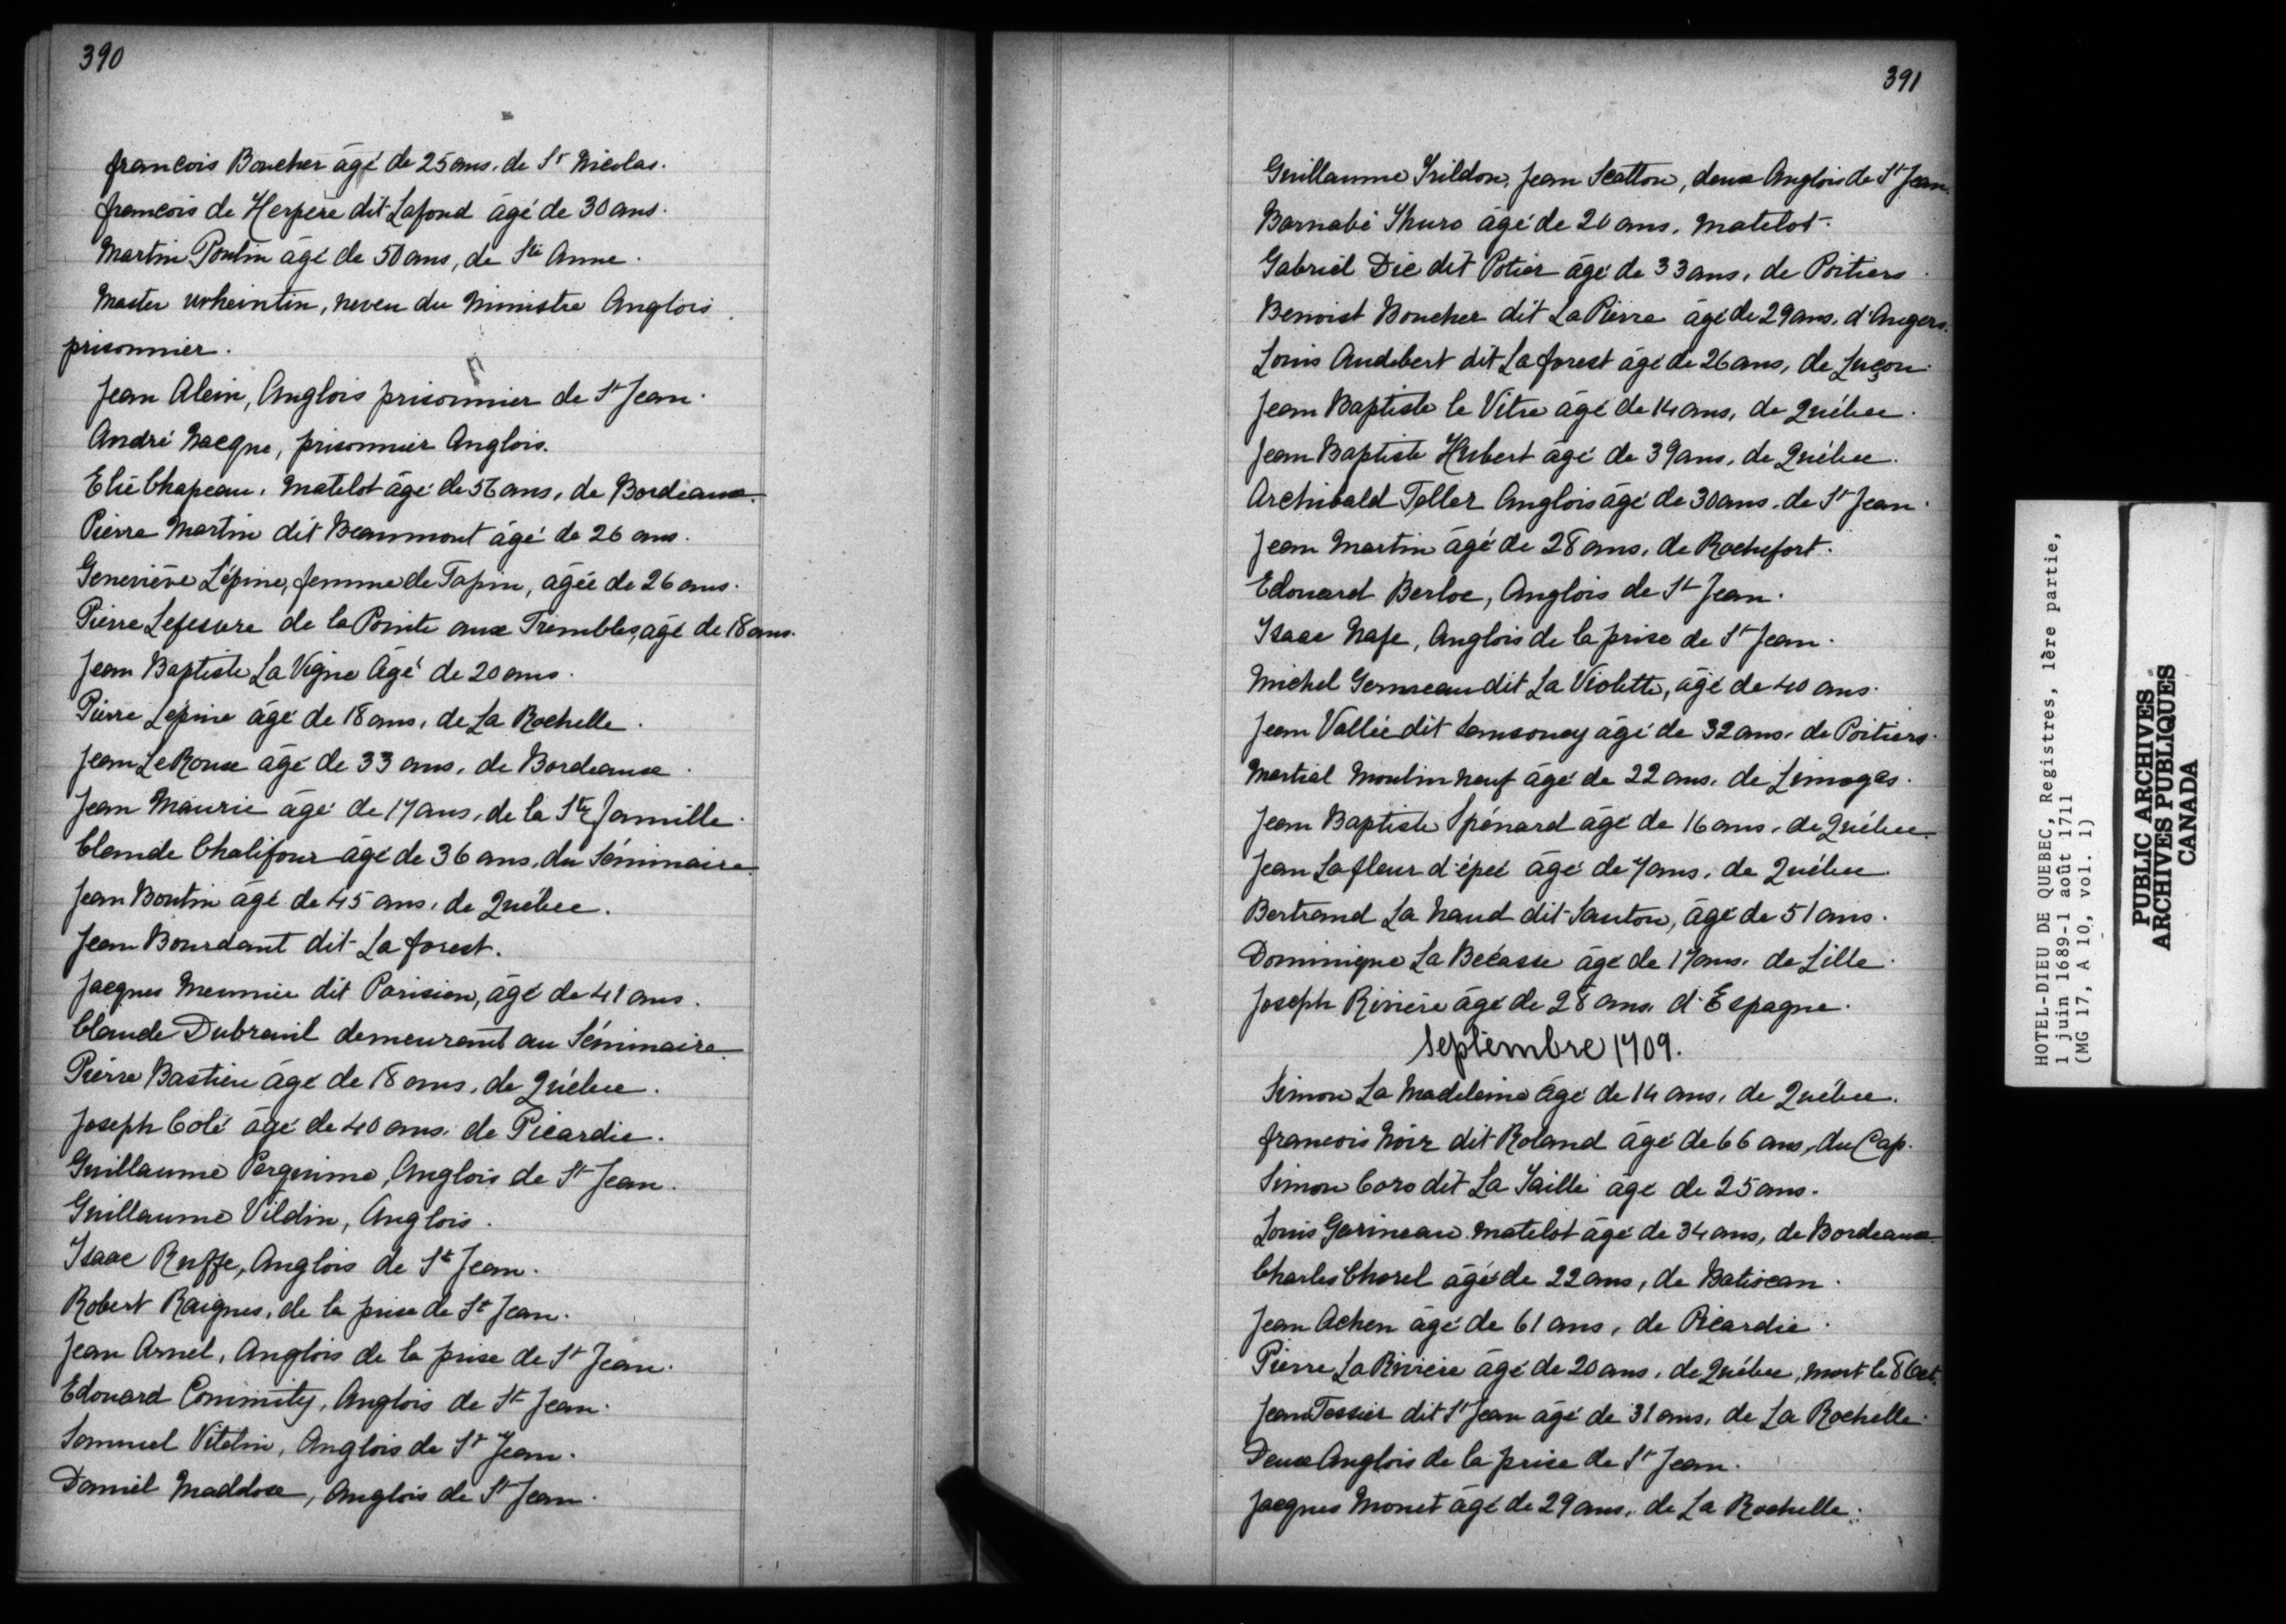 390
françois Boucher âgé de 25 ans, de St Nicolas.
françois de Herpere dit Lafond âgé de 30 ans.
Martin Poulin âgé de 50 ans, de Ste Anne.
Master urheintin, neveu du Ministre Anglois
prisonnier.
Jean Alein, Anglois prisonnier de St Jean.
André Nacque, prisonnier Anglois.
Elie Chapeau, Matelot âgé de 56 ans, de Bordeaux.
Pierre Martin dit Beaumont âgé de 26 ans.
Geneviève Lépine, femme de Tapin, âgée de 26 ans.
Pierre Lefesvre de la Pointe aux Trembles, âgé de 18 ans.
Jean Baptiste La Vigne Âgé de 20 ans.
Pierre Lépine âgé de 18 ans, de La Rochelle.
Jean LeRoux âgé de 33 ans, de Bordeaux.
Jean Maurie âgé de 17 ans, de la Ste famille.
Claude Chalifour âgé de 36 ans, du Séminaire.
Jean Boutin âgé de 45 ans, de Québec.
Jean Bourdant dit La forest.
Jacques Meunier dit Parisien, âgé de 41 ans.
Claude Dubreuil demeurant au Séminaire.
Pierre Bastien âgé de 18 ans, de Québec.
Joseph Colé âgé de 40 ans, de Picardie.
Guillaume Perguime, Anglois de St Jean.
Guillaume Vildin, Anglois.
Isaac Ruffe, Anglois de St Jean.
Robert Raignes, de la prise de St Jean.
Jean Arnel, Anglois de la prise de St Jean.
Edouard Commity, Anglois de St Jean.
Samuel Vitelin, Anglois de St Jean.
Daniel Maddox, Anglois de St Jean.
391
Guillaume Trildon, Jean Scatton, deux Anglois de St Jean.
Barnabé Thuro âgé de 20 ans, Matelot.
Gabriel Dié dit Potier âgé de 33 ans, de Poitiers.
Benoist Boucher dit La Pierre âgé de 29 ans, d'Angers.
Louis Audebert dit La forest âgé de 26 ans, de Luçon.
Jean Baptiste le Vitre âgé de 14 ans, de Québec.
Jean Baptiste Hubert âgé de 39 ans, de Québec.
Archibald Teller Anglois âgé de 30 ans, de St Jean.
Jean Martin âgé de 28 ans, de Rochefort.
Edouard Berloe, Anglois de St Jean.
Isaac Nafe, Anglois de la prise de St Jean.
Michel Germeau dit La Violette, âgé de 40 ans.
Jean Vallée dit Sansoucy âgé de 32 ans, de Poitiers.
Martial Moulin neuf âgé de 22 ans, de Limoges.
Jean Baptiste Spénard âgé de 16 ans, de Québec.
Jean Lafleur d'épée âgé de 7 ans, de Québec.
Bertrand La Naud dit Santon, âgé de 51 ans.
Dominique La Bécasse âgé de 17 ans, de Lille.
Joseph Rivière âgé de 28 ans, d'Espagne.
Septembre 1709.
Simon La Madeleine âgé de 14 ans, de Québec.
françois Noir dit Roland âgé de 66 ans, du Cap.
Simon Caro dit La Taille âgé de 25 ans.
Louis Garineau Matelot âgé de 34 ans, de Bordeaux.
Charles Chorel âgé de 22 ans, de Batiscan.
Jean Achen âgé de 61 ans, de Picardie.
Pierre La Rivière âgé de 20 ans, de Québec, mort le 8 Oct.
Jean Tessier dit St Jean âgé de 31 ans, de La Rochelle.
Deux Anglois de la prise de St Jean.
Jacques Monet âgé de 29 ans, de La Rochelle.
HOTEL-DIEU DE QUEBEC, Registres, 1ère partie,
1 juin 1689-1 août 1711
(MG 17, A 10, vol. 1)
PUBLIC ARCHIVES
ARCHIVES PUBLIQUES
CANADA